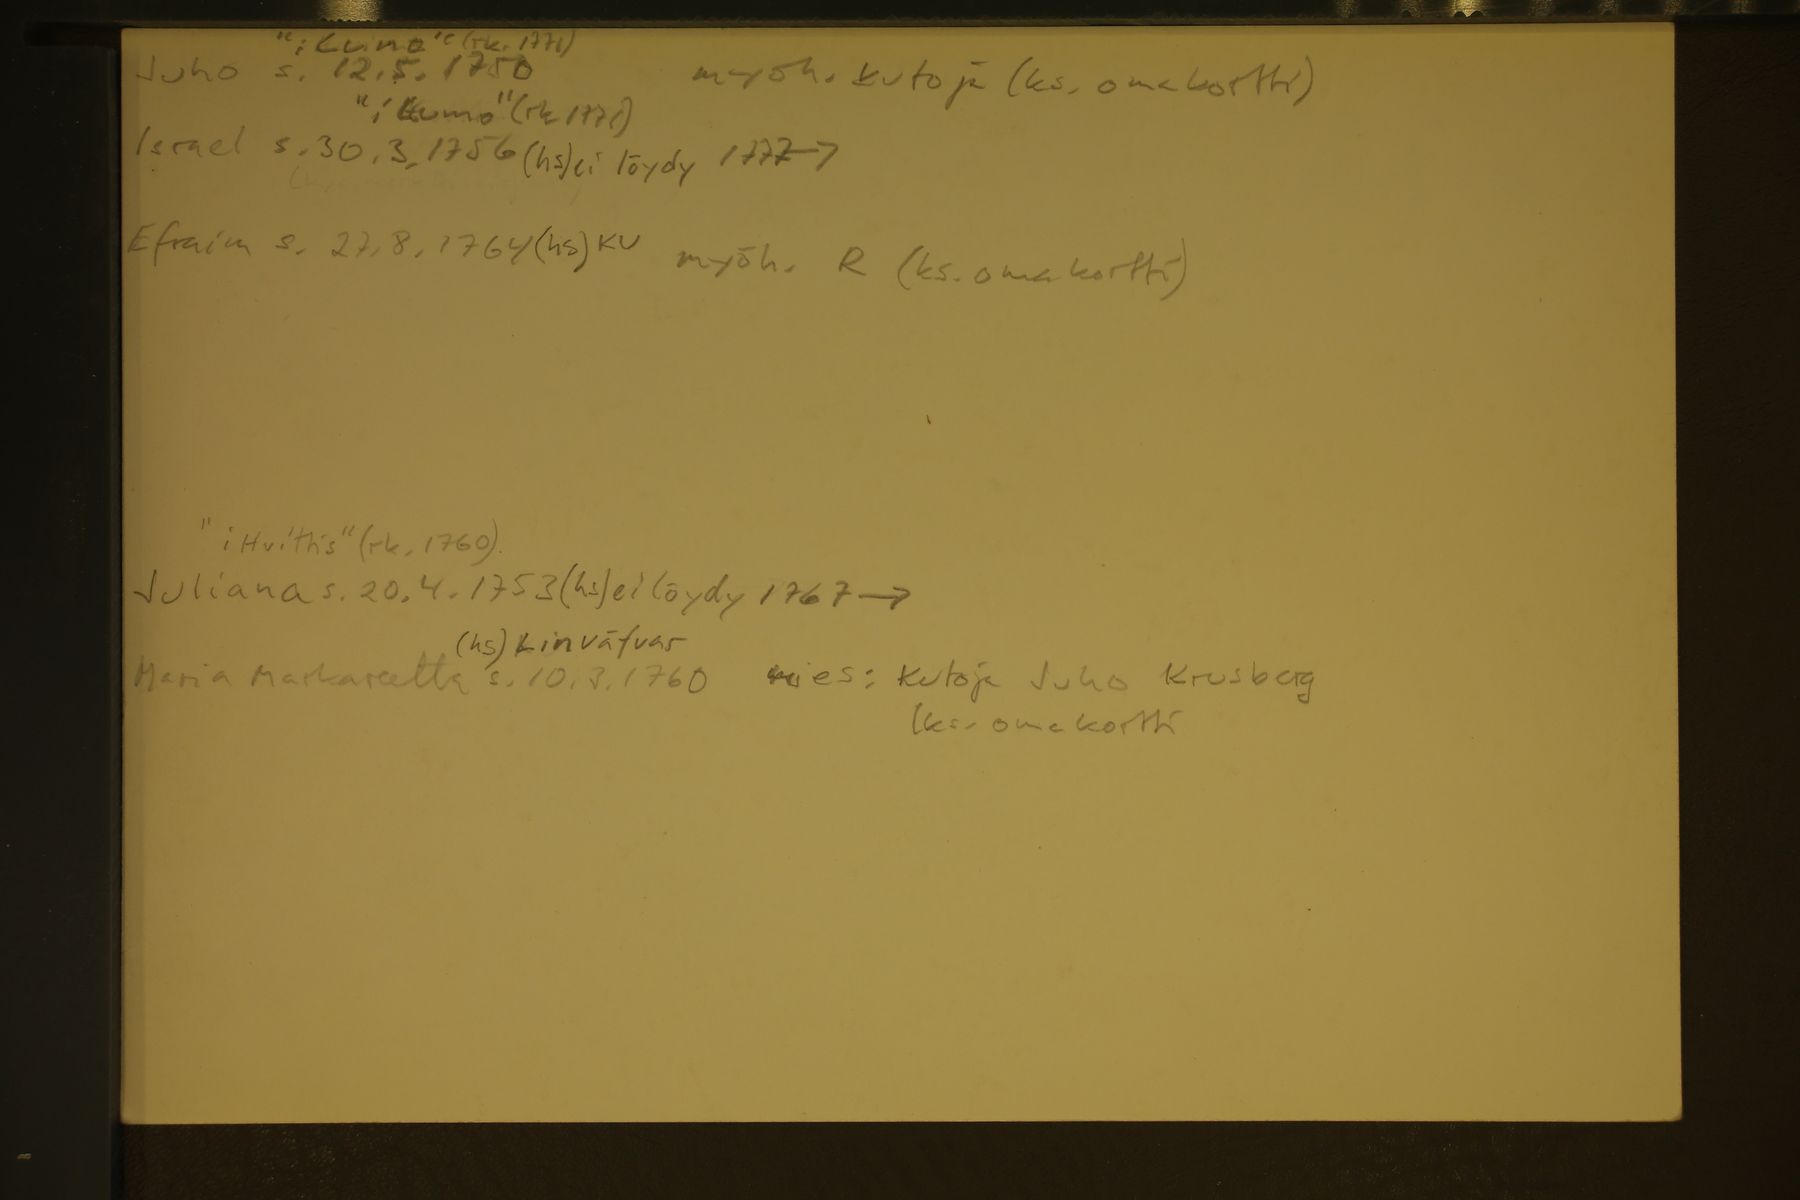 "i Kumo" (rk. 1771)
Juho s. 12.5.1750 myöh. kutoja (ks. oma kortti)
"i Kumo" (rk 1771)
Israel s. 30.3.1756 (hs) ei löydy 1777→
Efraim s. 27.8.1764 (hs) KU myöh. R (ks. oma kortti)
"i Hvittis" (rk. 1760).
Juliana s. 20.4.1753 (hs) ei löydy 1767→
(hs) Linväfvar
Maria Markareetta s. 10.3.1760 mies: Kutoja Juho Krusberg
(ks. oma kortti